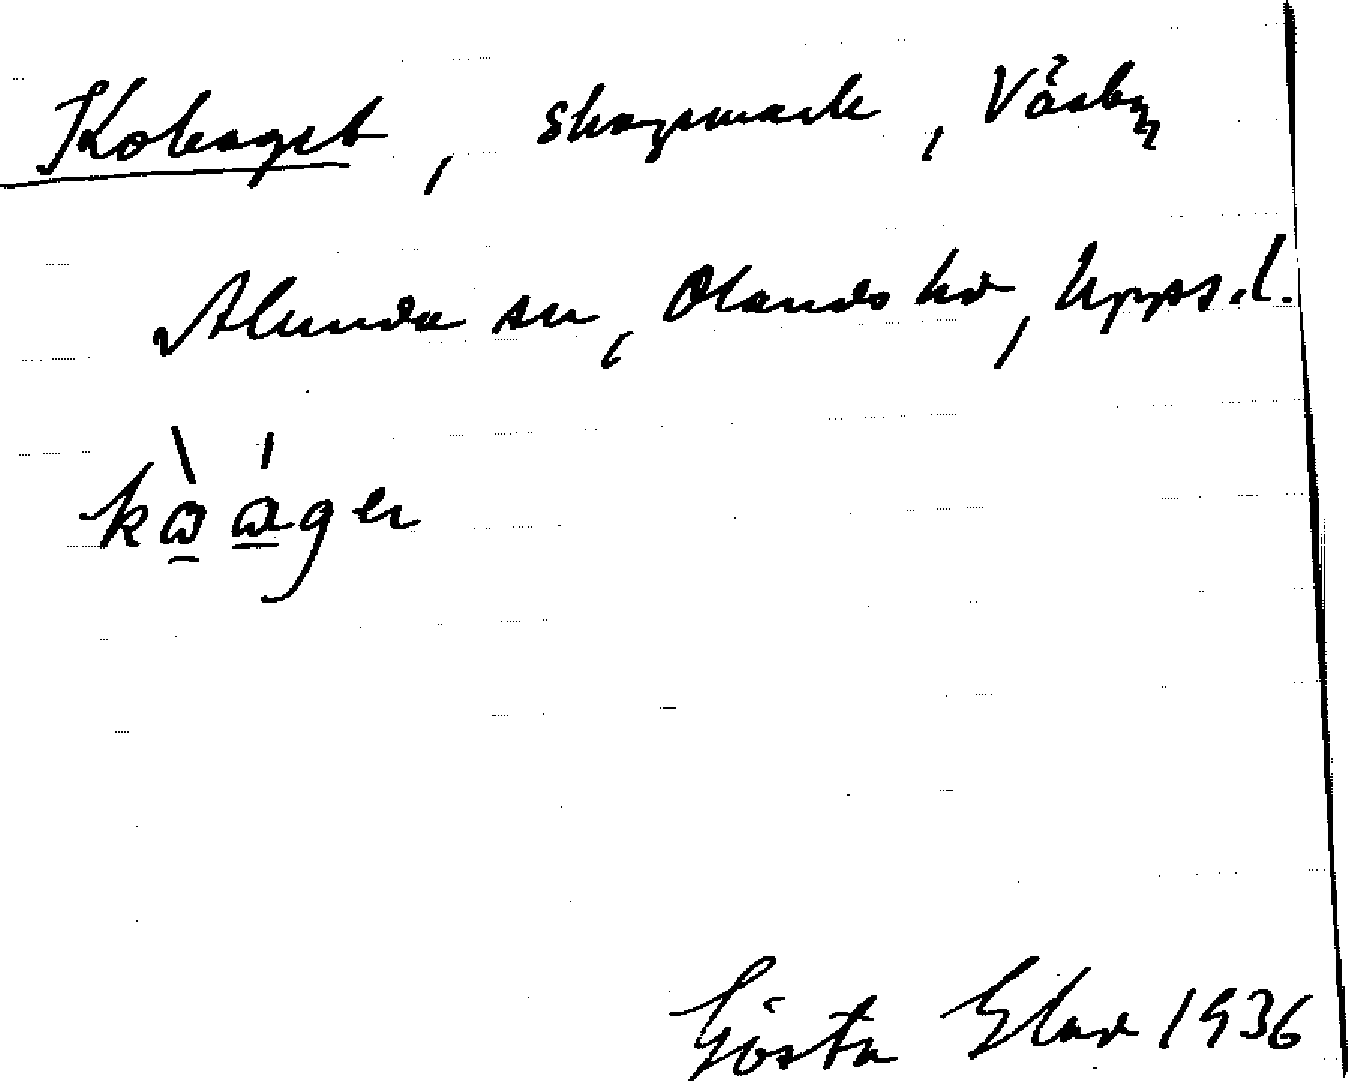 Kohaget, skogsmark, Våsby
Alunda sn, Olands hd, Upps. l.
Gösta Elav 1936